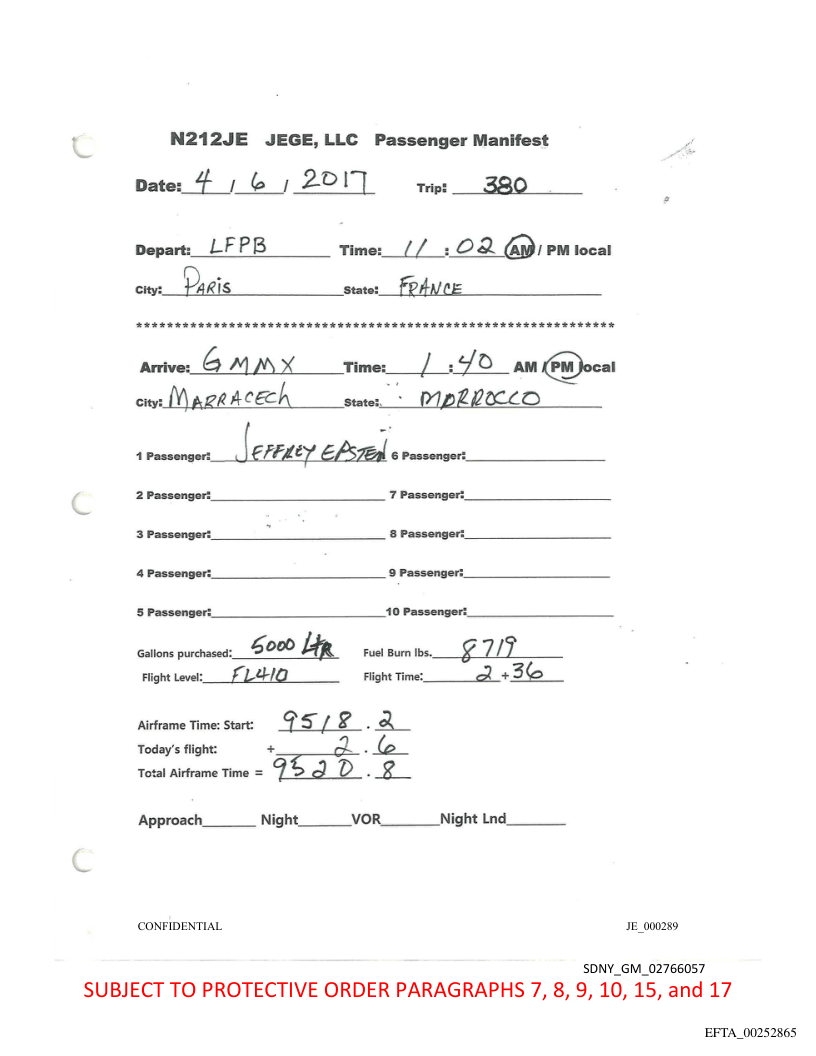 N212JE JEGE, LLC Passenger Manifest
Date: 4 / 6 / 2017 Trip: 380
Depart: LFPB Time: 11 : 02 AM / PM local
City: PARIS State: FRANCE
****************************************************************
Arrive: GMMX Time: 1 : 40 AM / PM local
City: MARRACECh State: MORROCCO
1 Passenger: JEFFREY EPSTEN 6 Passenger:
2 Passenger: 7 Passenger:
3 Passenger: 8 Passenger:
4 Passenger: 9 Passenger:
5 Passenger: 10 Passenger:
Gallons purchased: 5000 LTR Fuel Burn lbs. 8719
Flight Level: FL410 Flight Time: 2 + 36
Airframe Time: Start: 9518 . 2
Today's flight: + 2 . 6
Total Airframe Time = 9520 . 8
Approach Night VOR Night Lnd
CONFIDENTIAL JE_000289
SDNY_GM_02766057
SUBJECT TO PROTECTIVE ORDER PARAGRAPHS 7, 8, 9, 10, 15, and 17
EFTA_00252865